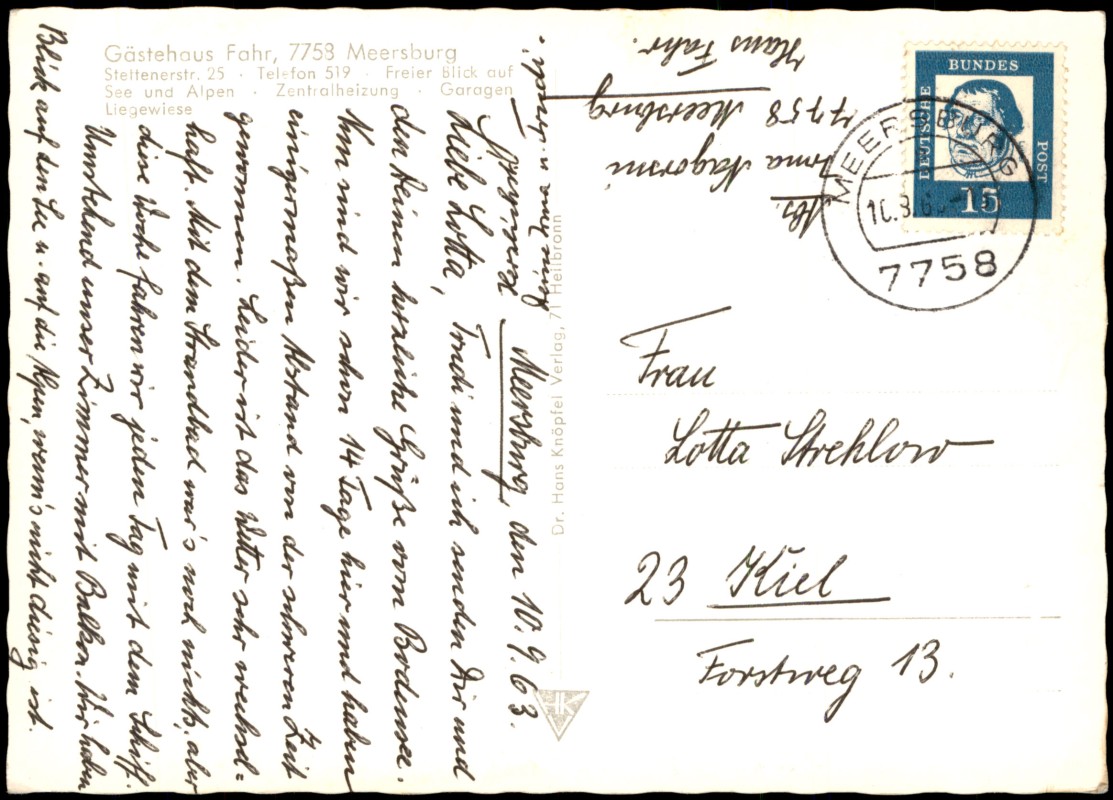 Gästehaus Fahr, 7758 Meersburg
Stettenerstr. 25 · Telefon 519 · Freier Blick auf
See und Alpen · Zentralheizung · Garagen
Liegewiese
Meersburg, den 10.9.63.
Liebe Lotta, Trudi und ich senden Dir und
den Deinen herzliche Grüße vom Bodensee.
Nun sind wir schon 14 Tage hier und haben
einigermaßen Abstand von der schweren Zeit
gewonnen. Leider ist das Wetter sehr wechsel=
haft. Mit dem Strandbad war's noch nichts, aber
diese Woche fahren wir jeden Tag mit dem Schiff.
Umstehend unser Zimmer mit Balkon. Wir haben
Blick auf den See u. auf die Alpen, wenn's nicht diesig ist.
Abs. Irma Nagorsni
7758 Meersburg
Hans Fahr.
Dr. Hans Knöpfel Verlag, 71 Heilbronn
HK
DEUTSCHE
BUNDES
POST
15
MEERSBURG
7758
Frau
Lotta Strehlow
23 Kiel
Forstweg 13.